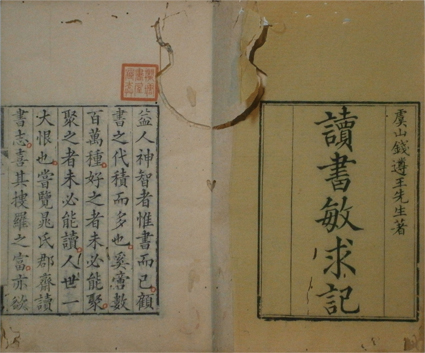 虞山錢遵王先生著
讀書敏求記
益人神智者惟書而已顧
書之代積而多也奚啻數
百萬種好之者未必能聚
聚之者未必能讀人世一
大恨也嘗覽晁氏郡齋讀
書志喜其摟羅之富亦欲